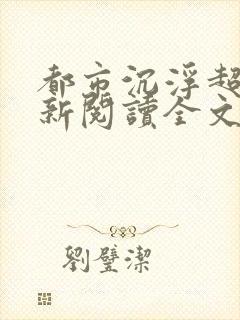 都市沉浮超
新閱讀全文
劉璧潔